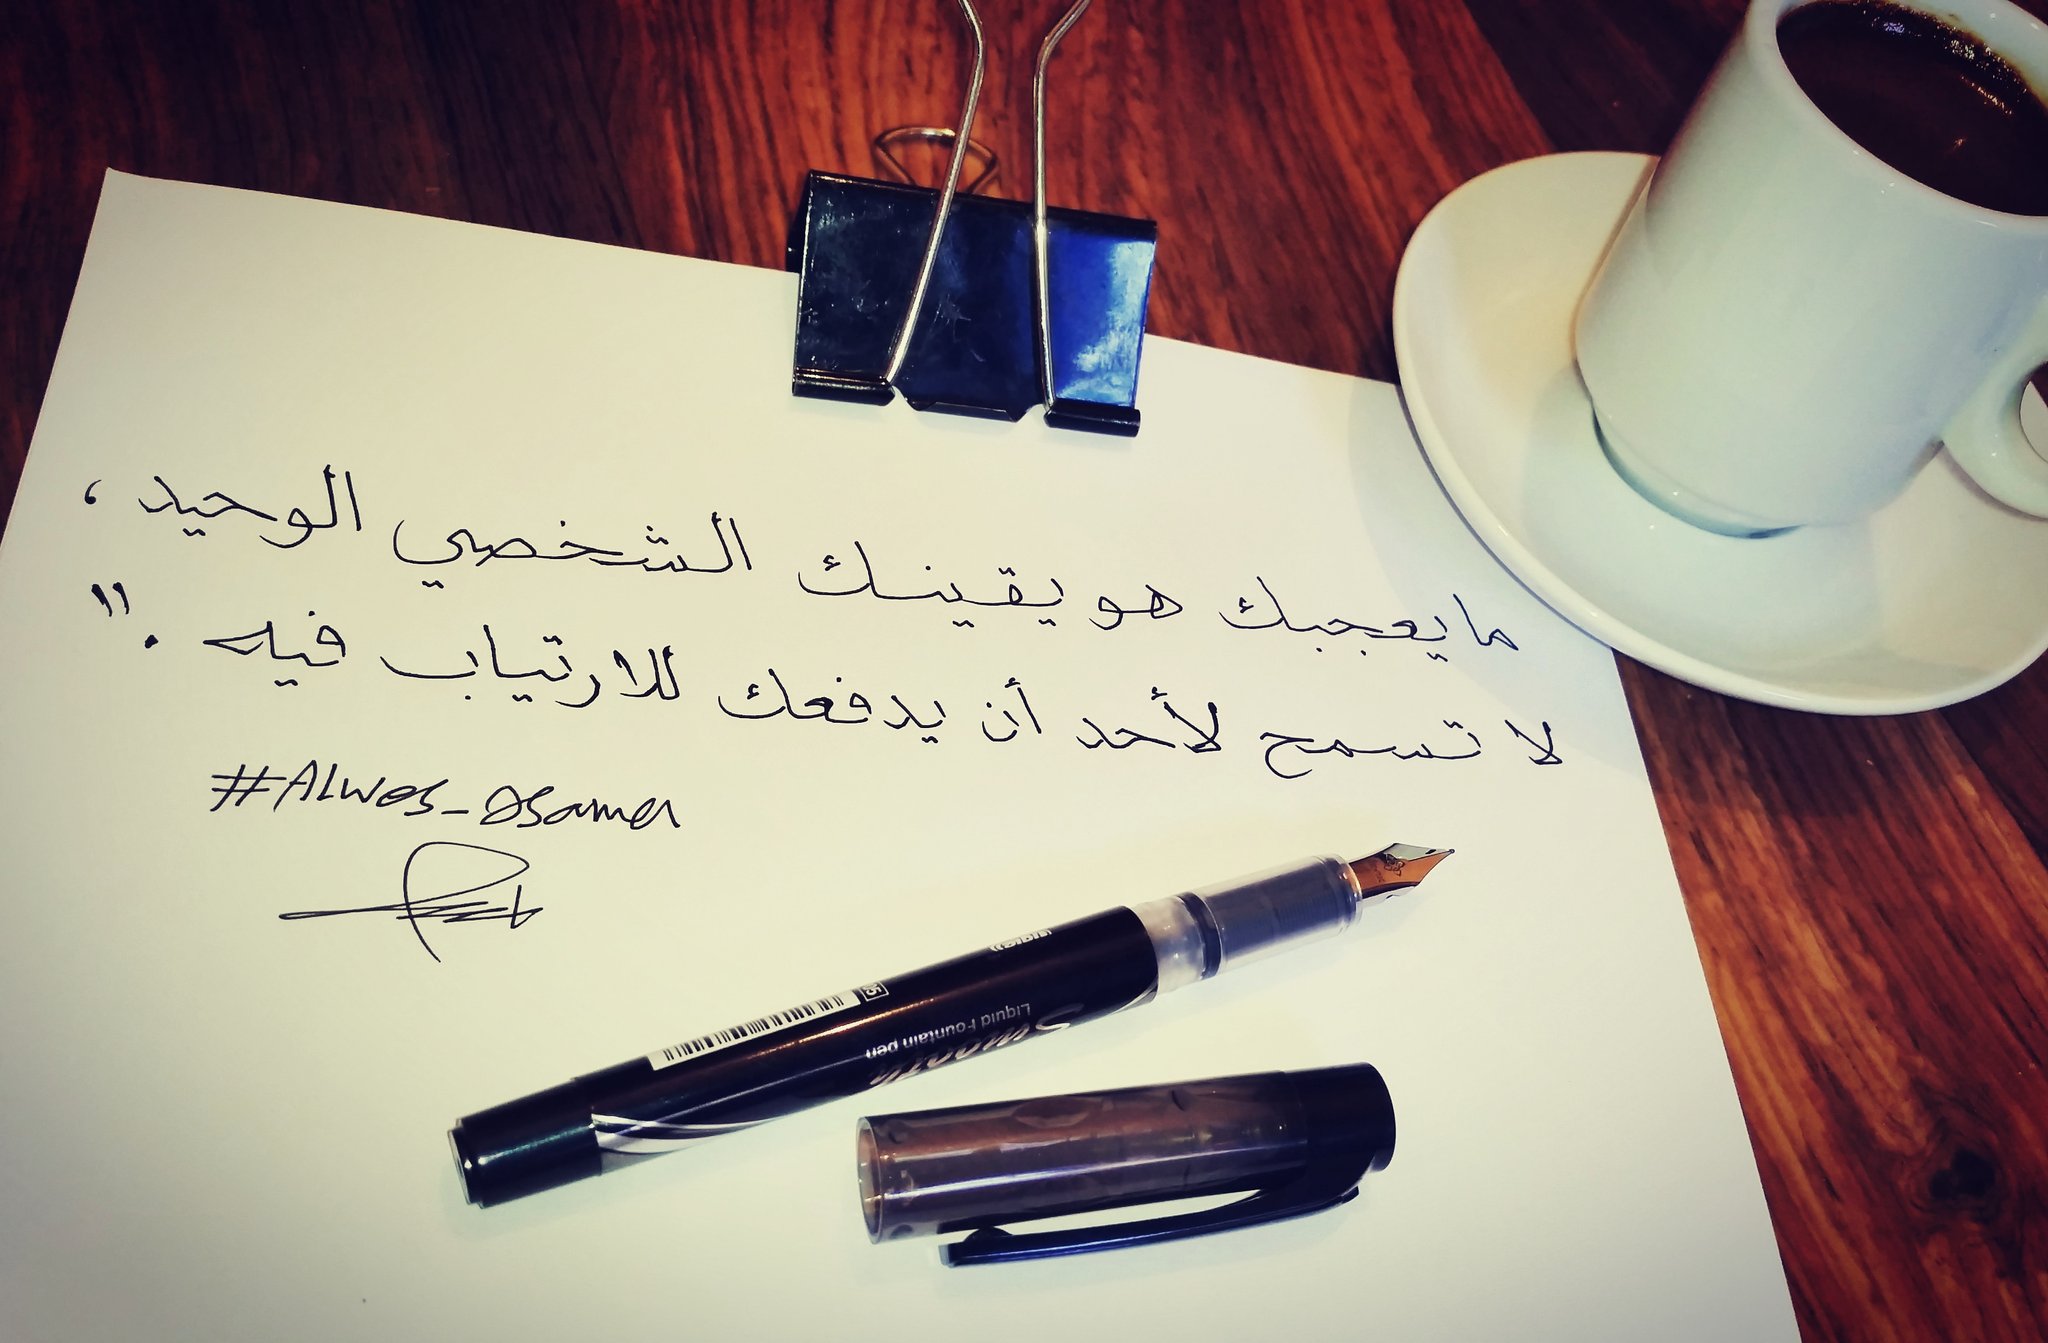 ما يعجبك هو يقينك الشخصي الوحيد ،
لا تسمح لأحد أن يدفعك للارتياب فيه . "
#Alwes_osama
Smooth
Liquid Fountain pen